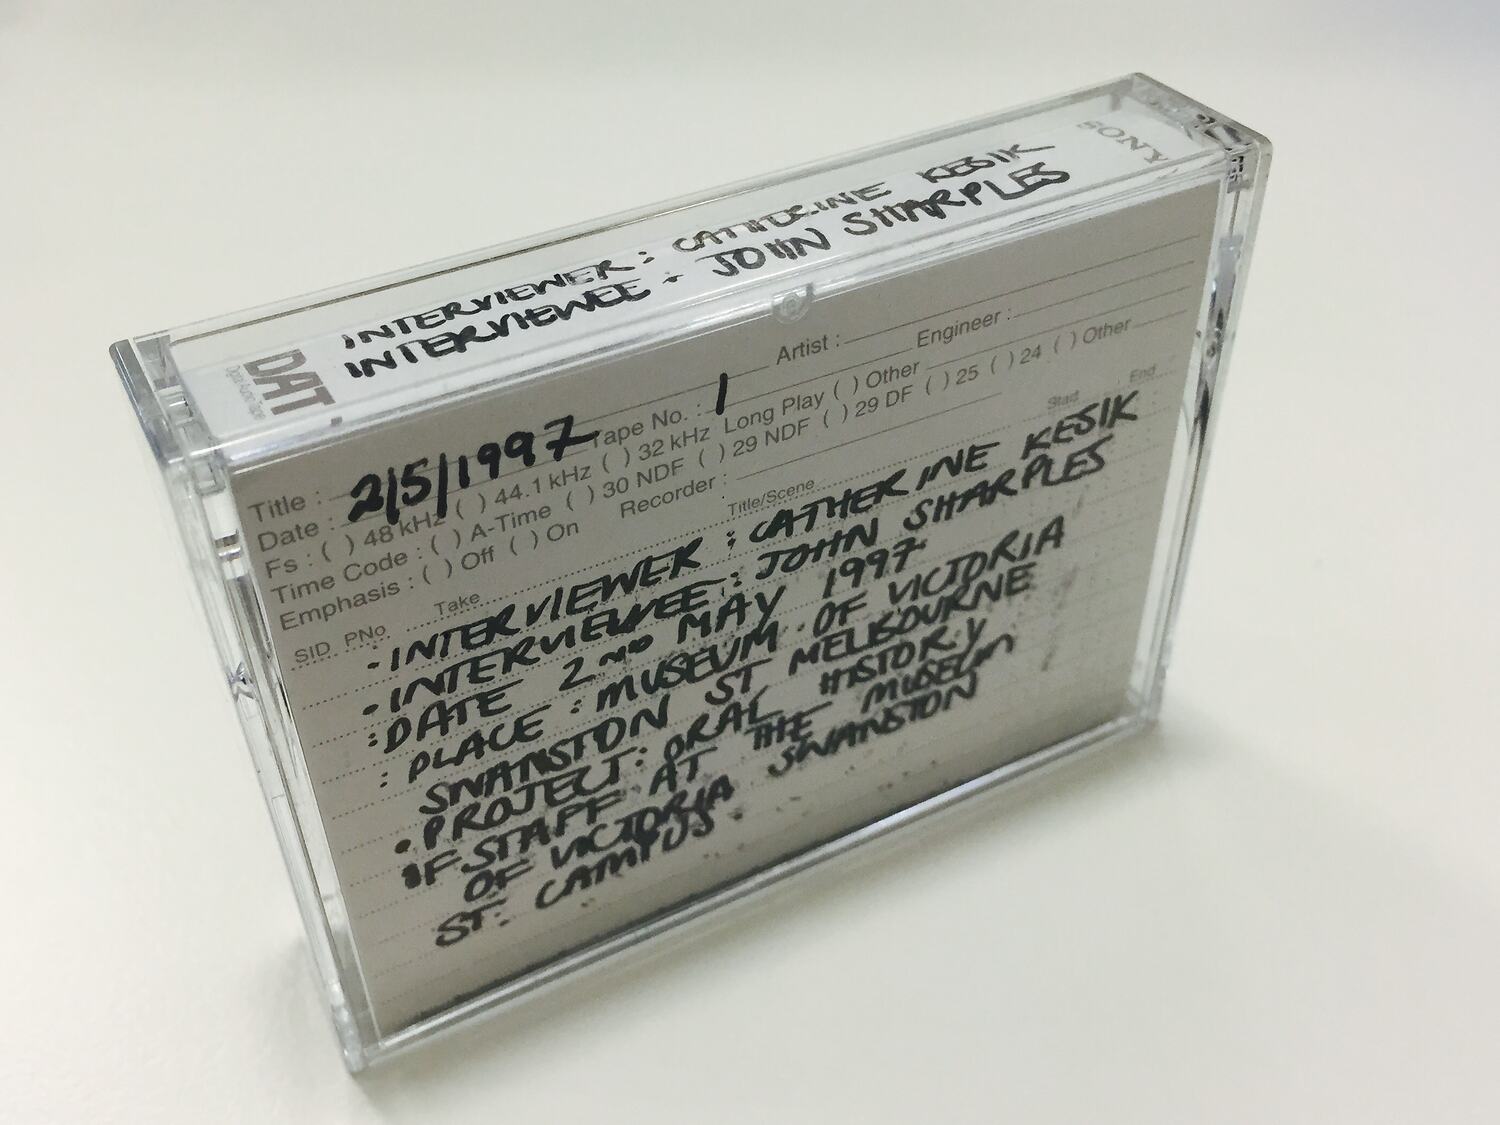 SONY
INTERVIEWER: CATHERINE KESIK
INTERVIEWEE: JOHN SHARPLES
DAT
Digital Audio Tape
Title :
Date : 2/5/1997 Tape No. : 1 Artist : Engineer :
Fs : ( ) 48 kHz ( ) 44.1 kHz ( ) 32 kHz Long Play ( ) Other
Time Code : ( ) A-Time ( ) 30 NDF ( ) 29 NDF ( ) 29 DF ( ) 25 ( ) 24 ( ) Other
Emphasis : ( ) Off ( ) On Recorder :
SID PNo Take Title/Scene Start End
• INTERVIEWER : CATHERINE KESIK
• INTERVIEWEE : JOHN SHARPLES
: DATE 2ND MAY 1997
: PLACE : MUSEUM OF VICTORIA
SWANSTON ST MELBOURNE
• PROJECT: ORAL HISTORY
OF STAFF AT THE MUSEUM
OF VICTORIA SWANSTON
ST. CAMPUS.